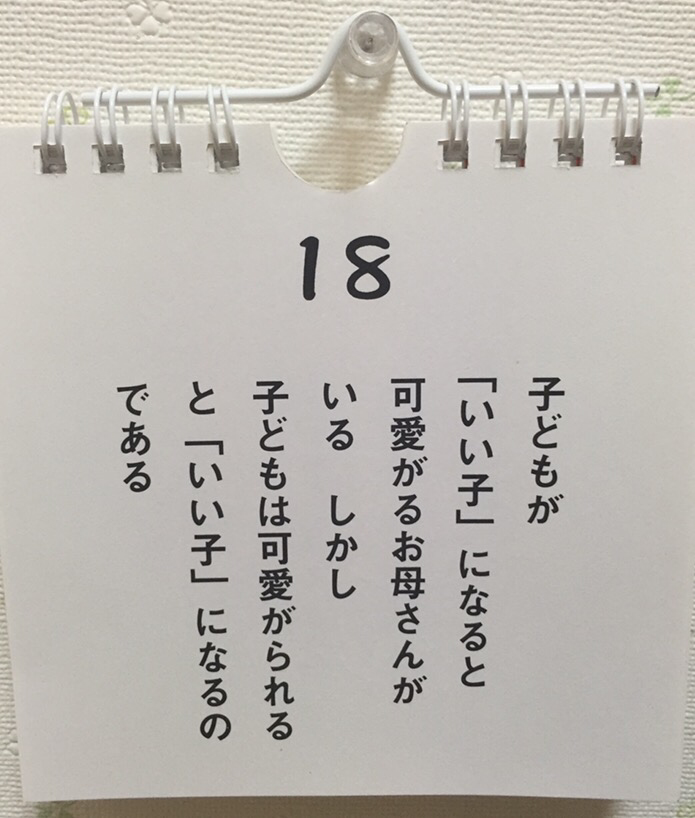 18
子どもが
「いい子」になると
可愛がるお母さんが
いる　しかし
子どもは可愛がられる
と「いい子」になるの
である